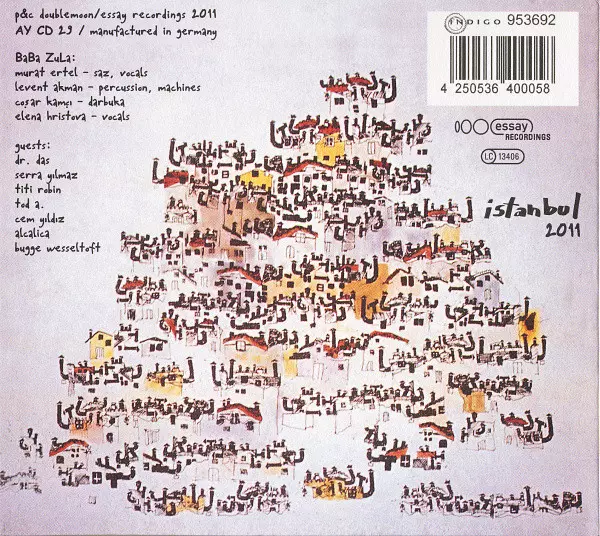 p&c doublemoon/essay recordings 2011
AY CD 29 / manufactured in germany
BaBa ZuLa:
murat ertel – saz, vocals
levent akman – percussion, machines
coşar kamçı – darbuka
elena hristova – vocals
guests:
dr. das
serra yılmaz
titi robin
tod a.
cem yıldız
alcalica
bugge wesseltoft
INDIGO 953692
4 250536 400058
essay
RECORDINGS
LC 13406
istanbul
2011